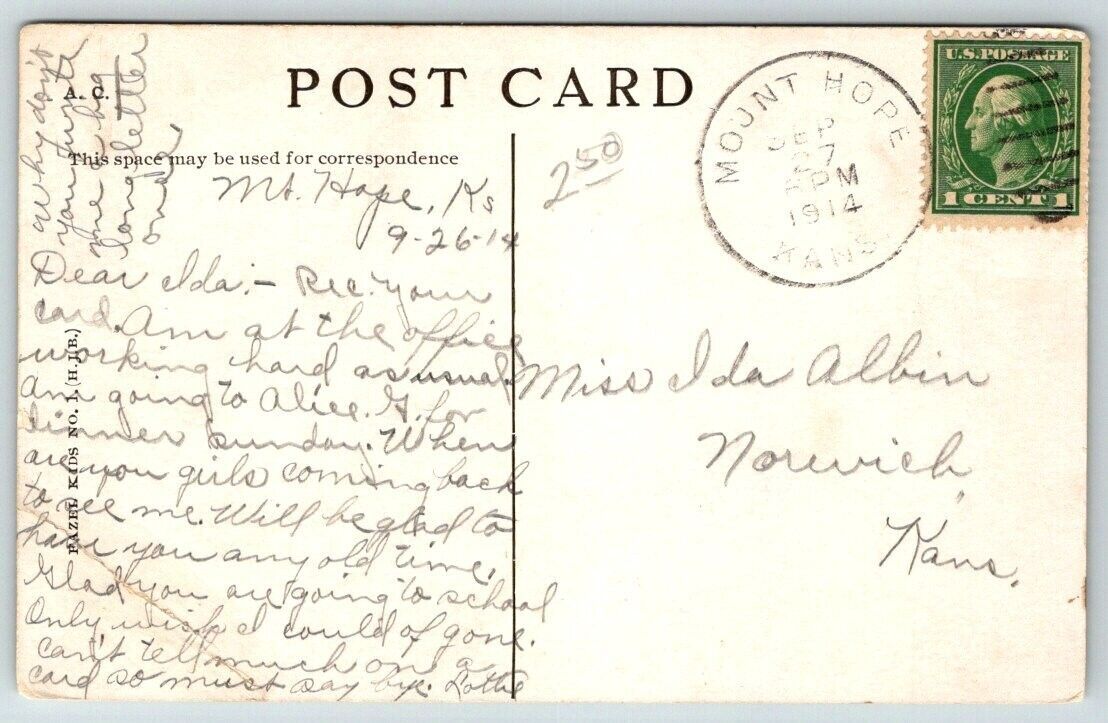 POST CARD
A. C.
This space may be used for correspondence
FAZEL KIDS NO. 1. (H. JB.)
2 50
MOUNT HOPE
SEP
27
PM
1914
KANS.
U.S. POSTAGE
1 CENT 1
Why don't
you write
me a big
long letter
once
Mt. Hope, Ks
9-26-14
Dear Ida:- Rec. your
card. Am at the office
working hard as usual.
Am going to Alice. G. for
dinner sunday. When
are you girls coming back
to see me. Will be glad to
have you any old time.
Glad you are going to school
Only wish I could of gone.
can't tell much on a
card so must say bye. Lottie
Miss Ida Albin
Norwich,
Kans.